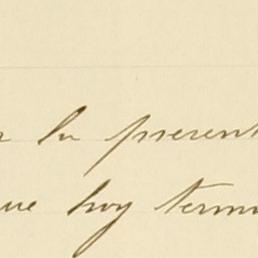 la present
ue hoy termi